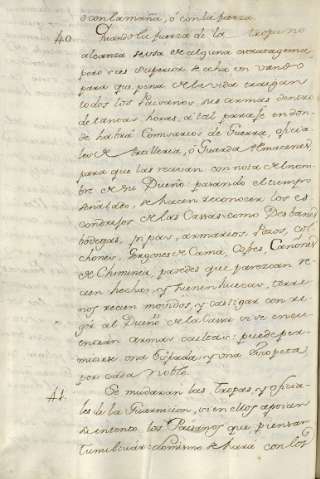 o con la maña, ó con la fuerza
40. Quando la fuerza de la tropa no
alcanza se usa de alguna extratagema
pero si es Superior se echa un vando
para que pena de la vida traigan
todos los Paisanos, sus armas dentro
de tantas horas, á tal paraje en don-
de habrá Comisarios de Guerra, oficia-
les de Artilleria, ó Guarda Almacenes
para que las reciban con nota del nom-
bre de su Dueño pasando el tiempo
señalado, se hacen reconocer los es
condrijos de las Casas como Desbanes
bodegas, pajares, armarios, Pozos, col
chones, Gergones de Cama, Cofres, Cañones
de Chiminea, paredes que parezcan re
cien hechas, y suenen huecas, terre
nos recien movidos, y castigar con re
gor al Dueño de la Casa si se encu
entran armas ocultas: puede per
mitirse una Espada, y una Escopeta
por cada Noble.
41. Se mudaran las Tropas, y oficia
les de la Guarnicion, si en ellos apoian
su intento los Paisanos que piensan
tumultuar: lo mismo se hará con los